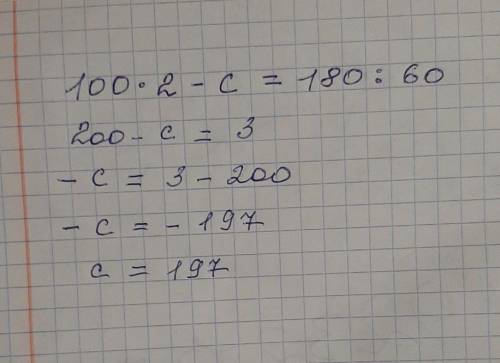 100 · 2 - c = 180 : 60
200 - c = 3
- c = 3 - 200
- c = - 197
c = 197